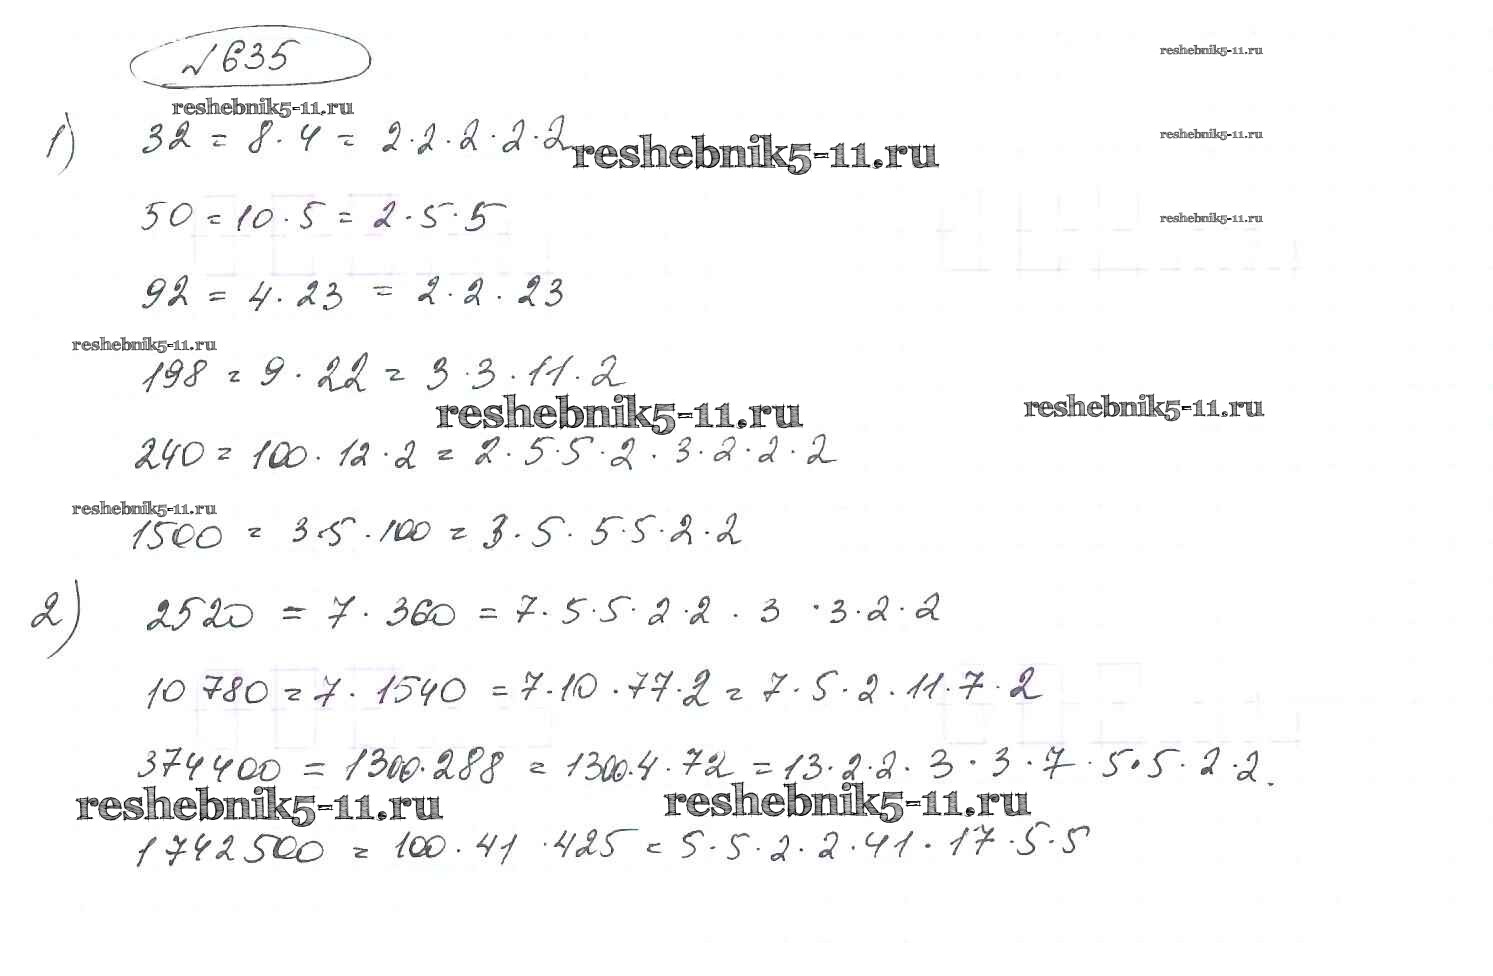 № 635
reshebnik5-11.ru
reshebnik5-11.ru
1) 32 = 8 · 4 = 2 · 2 · 2 · 2 · 2
reshebnik5-11.ru
reshebnik5-11.ru
50 = 10 · 5 = 2 · 5 · 5
reshebnik5-11.ru
92 = 4 · 23 = 2 · 2 · 23
reshebnik5-11.ru
198 = 9 · 22 = 3 · 3 · 11 · 2
reshebnik5-11.ru
reshebnik5-11.ru
240 = 100 · 12 · 2 = 2 · 5 · 5 · 2 · 3 · 2 · 2 · 2
reshebnik5-11.ru
1500 = 3 · 5 · 100 = 3 · 5 · 5 · 5 · 2 · 2
2) 2520 = 7 · 360 = 7 · 5 · 5 · 2 · 2 · 3 · 3 · 2 · 2
10 780 = 7 · 1540 = 7 · 10 · 77 · 2 = 7 · 5 · 2 · 11 · 7 · 2
374400 = 1300 · 288 = 1300 · 4 · 72 = 13 · 2 · 2 · 3 · 3 · 7 · 5 · 5 · 2 · 2.
reshebnik5-11.ru
reshebnik5-11.ru
1742500 = 100 · 41 · 425 = 5 · 5 · 2 · 2 · 41 · 17 · 5 · 5